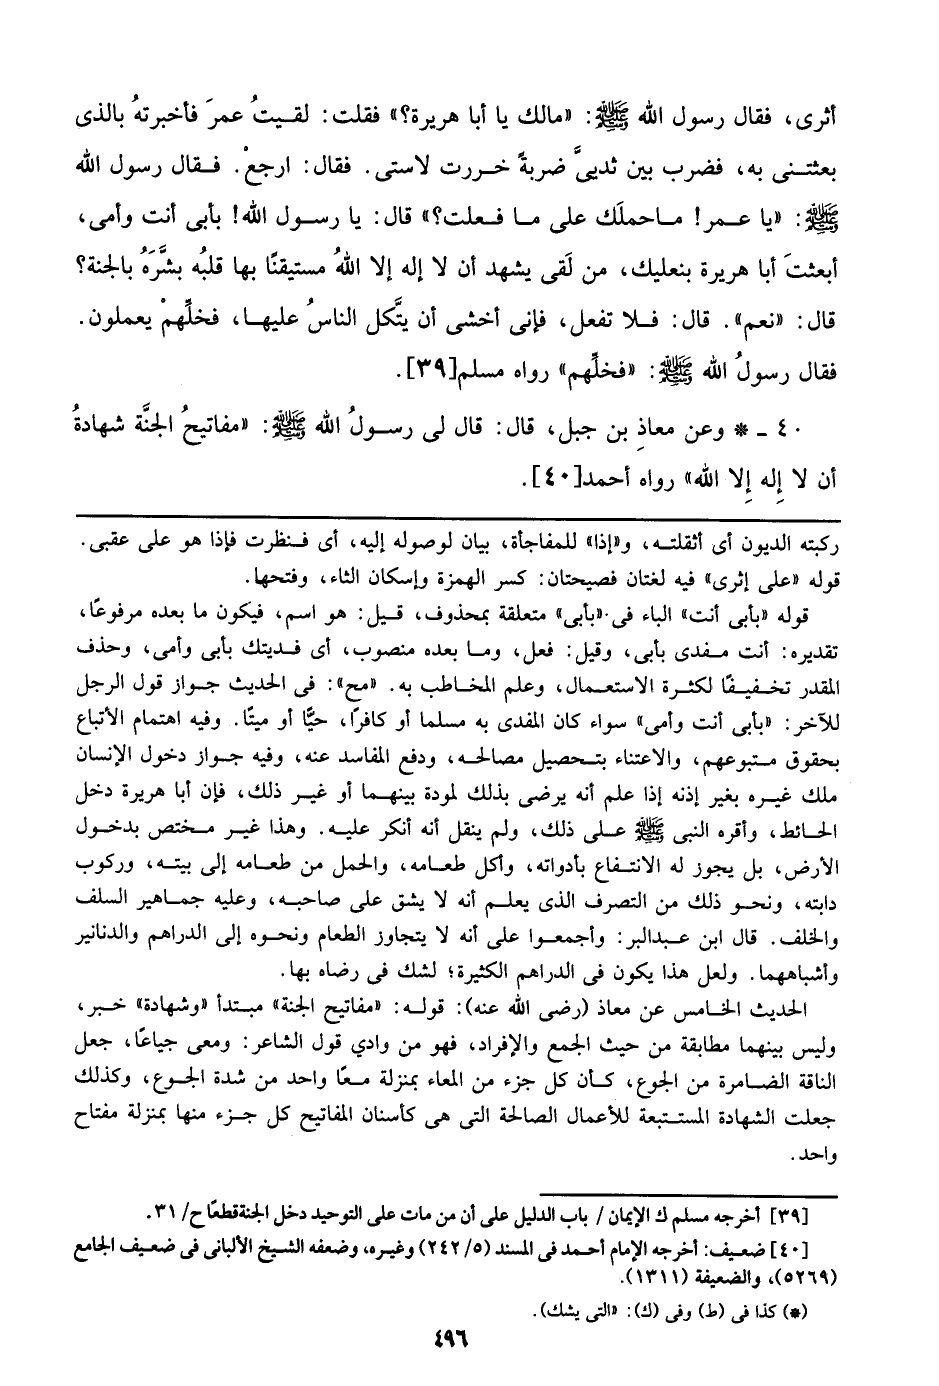 أثرى، فقال رسول الله ﷺ: «مالك يا أبا هريرة؟» فقلت: لقـيتُ عمرَ فأخبرتهُ بالذى
بعثتـنى به، فضرب بين ثدييَّ ضربةً خـررت لاستى. فقال: ارجعْ. فـقال رسول الله
ﷺ: «يا عـمر! مـاحملَك على مـا فـعلت؟» قال: يا رسـول الله! بأبى أنت وأمى،
أبعثتَ أبا هريرة بنعليك، من لَقى يشهد أن لا إله إلا اللهُ مستيقنًا بها قلبُه بشَّرَهُ بالجنة؟
قال: «نعم». قال: فـلا تفعل، فإنى أخشى أن يتَّكل الناسُ عليهـا، فخلِّهمْ يعملون.
فقال رسولُ الله ﷺ: «فخلِّهم» رواه مسلم[٣٩].
٤٠ ـ * وعن معاذِ بن جبل، قال: قال لى رسـولُ الله ﷺ: «مفاتيحُ الجنَّة شهادةُ
أن لا إِله إِلا الله» رواه أحمد[٤٠].
ركبته الديون أى أثقلتـه، و«إذا» للمفاجأة، بيان لوصوله إليه، أى فـنظرت فإذا هو على عقبى.
قوله «على إثرى» فيه لغتان فصيحتان: كسر الهمزة وإسكان الثاء، وفتحها.
قوله «بأبى أنت» الباء فى «بأبى» متعلقة بمحذوف، قـيل: هو اسم، فيكون ما بعده مرفوعًا،
تقديره: أنت مـفدى بأبى، وقيل: فعل، ومـا بعده منصوب، أى فـديتك بأبى وأمى، وحذف
المقدر تخـفيـفًا لكثـرة الاستعـمال، وعلم المخـاطب به. «مح»: فى الحديث جـواز قول الرجل
للآخر: «بأبى أنت وأمى» سواء كان المفدى به مسلما أو كافرًا، حيًّا أو ميتًا. وفيه اهتمام الأتباع
بحقوق متـبوعهم، والاعتناء بتـحصيل مصالحـه، ودفع المفاسد عنه، وفيه جـواز دخول الإنسان
ملك غيـره بغير إذنه إذا علم أنه يرضى بذلك لمودة بينهـما أو غيـر ذلك، فإن أبا هريرة دخل
الحـائط، وأقره النبى ﷺ عـلى ذلك، ولم ينقل أنه أنكر عليـه. وهذا غيـر مـختص بدخـول
الأرض، بل يجوز له الانتـفاع بأدواته، وأكل طعـامه، والحمل من طعـامه إلى بيتـه، وركوب
دابته، ونحـو ذلك من التصرف الذى يعلـم أنه لا يشق على صاحبـه، وعليه جمـاهير السلف
والخلف. قال ابن عـبدالبر: وأجمعـوا على أنه لا يتجاوز الطعام ونحـوه إلى الدراهم والدنانير
وأشباههما. ولعل هذا يكون فى الدراهم الكثيرة؛ لشك فى رضاه بها.
الحديث الخامس عن معاذ (رضى الله عنه): قولـه: «مفاتيح الجنة» مبـتدأ «وشهادة» خبـر،
وليس بينهما مطابقة من حيث الجمع والإفراد، فهو من وادي قول الشاعر: ومعى جياعًا، جعل
الناقة الضـامرة من الجوع، كـأن كل جزء من المعاء بمنزلة مـعًا واحد من شدة الجـوع، وكذلك
جعلت الشهادة المستـتبعة للأعمال الصالحة التى هى كأسنان المفاتيح كل جـزء منها بمنزلة مفتاح
واحد.
[٣٩] أخرجه مسلم ك الإيمان / باب الدليل على أن من مات على التوحيد دخل الجنةقطعًا ح/ ٣١.
[٤٠] ضعيف: أخرجه الإمام أحمد فى المسند (٥/ ٢٤٢) وغيره، وضعفه الشيخ الألبانى فى ضعيف الجامع
(٥٢٦٩)، والضعيفة (١٣١١).
(*) كذا فى (ط) وفى (ك): «التى يشك).
٤٩٦